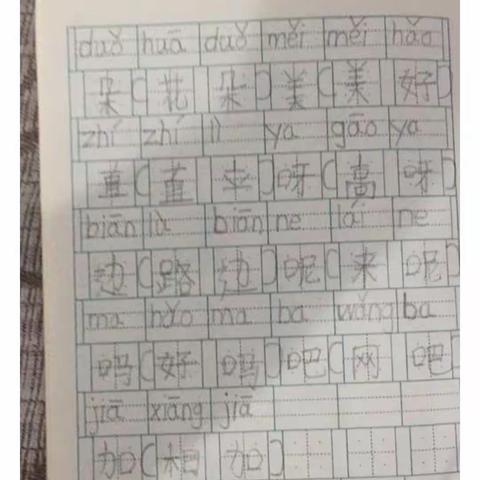 duǒ huā duǒ měi měi hǎo
朵(花朵)美(美好)
zhí zhí lì ya gāo ya
直(直立)呀(高呀)
biān lù biān ne lái ne
边(路边)呢(来呢)
ma hǎo ma ba wǎng ba
吗(好吗)吧(网吧)
jiā xiāng jiā
加(相加)